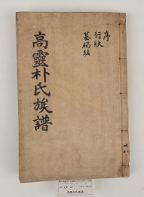 序
行狀
墓碣銘
高靈朴氏族譜